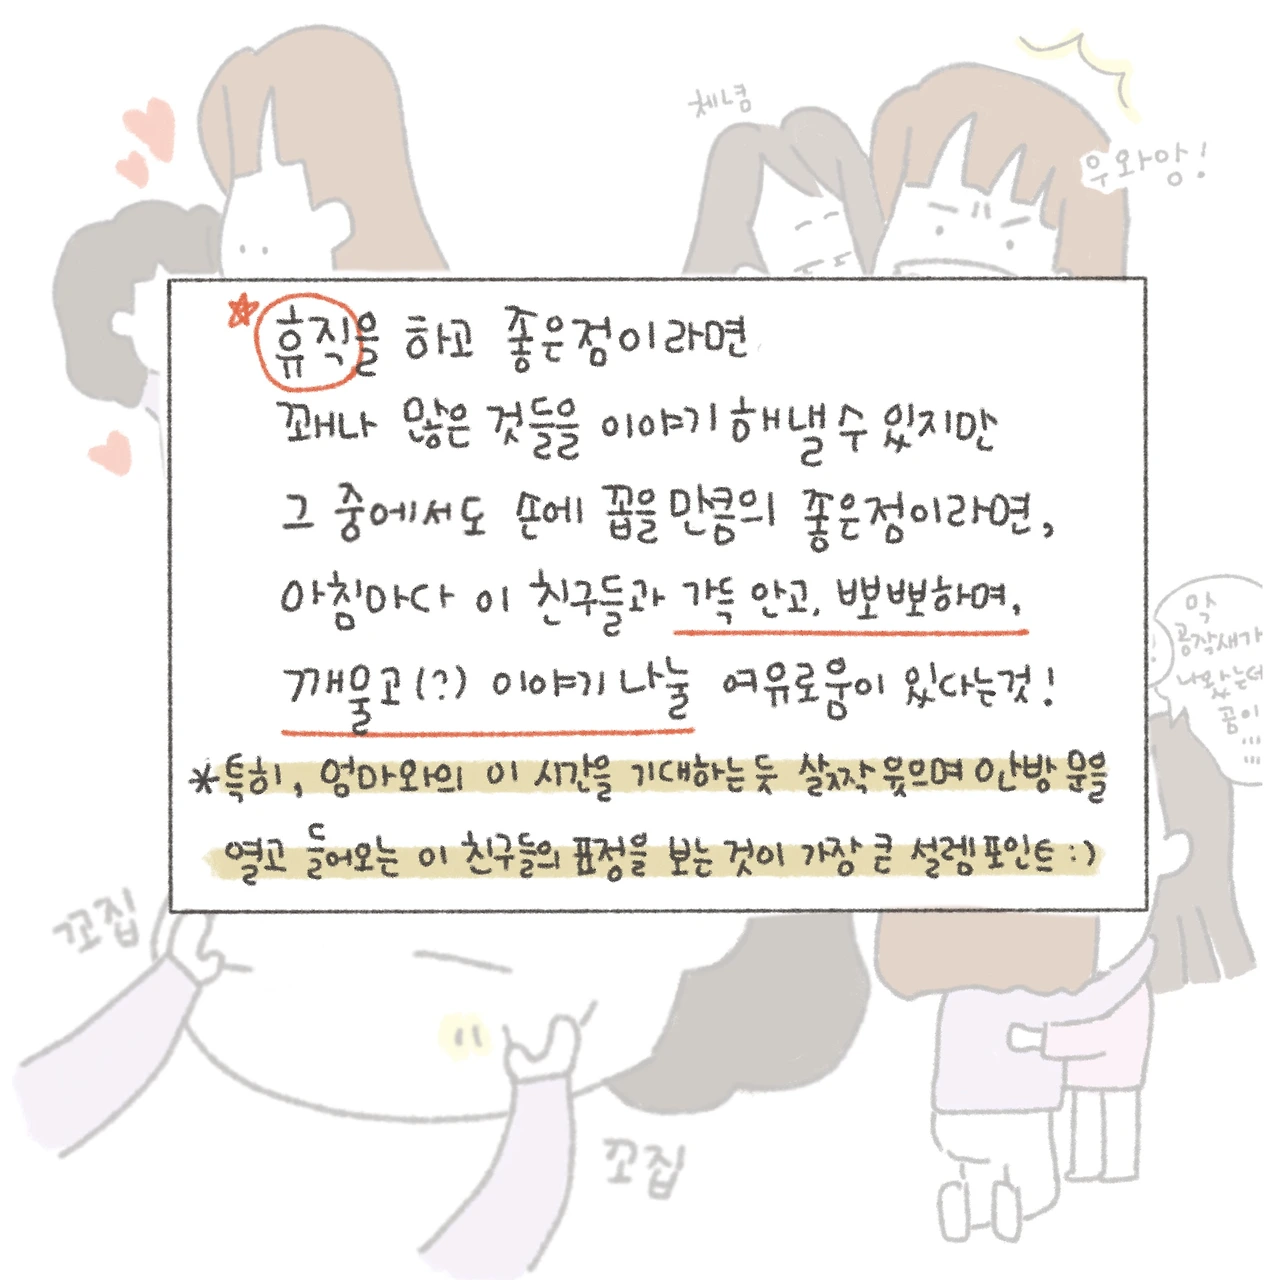 체념
우와앙!
휴직을 하고 좋은점이라면
꽤나 많은 것들을 이야기해낼 수 있지만
그 중에서도 손에 꼽을만큼의 좋은점이라면,
아침마다 이 친구들과 가득 안고, 뽀뽀하며,
깨물고(?) 이야기 나눌 여유로움이 있다는것!
*특히, 엄마와의 이 시간을 기대하는듯 살짝 웃으며 안방 문을
열고 들어오는 이 친구들의 표정을 보는 것이 가장 큰 설렘포인트 :)
막
공작새가
나왔는데
곰이
...
꼬집
꼬집